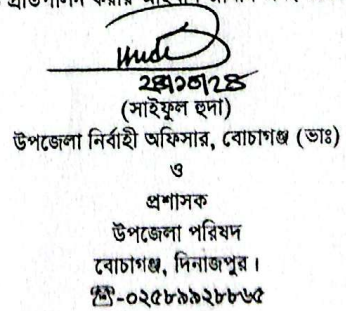 করার
২৪/১০/২৪
(সাইফুল হুদা)
উপজেলা নির্বাহী অফিসার, বোচাগঞ্জ (ভাঃ)
ও
প্রশাসক
উপজেলা পরিষদ
বোচাগঞ্জ, দিনাজপুর।
☎-০২৫৮৯৯২৮৮৬৫